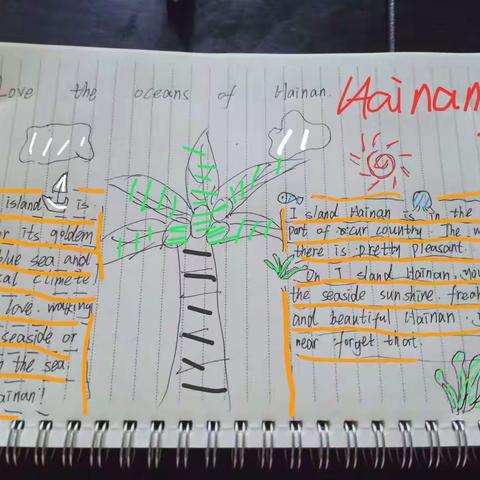 Love the oceans of Hainan.
Hainan
island is
r its goldem
blue sea and
cal climete
love. walking
seaside or
n the sea.
ainan!
I sland Hainan is in the
part of our country. The w
there is pretty pleasant.
On I sland Hainan,
the seaside sunshine. freah
and beautiful Hainan.
near forget that.